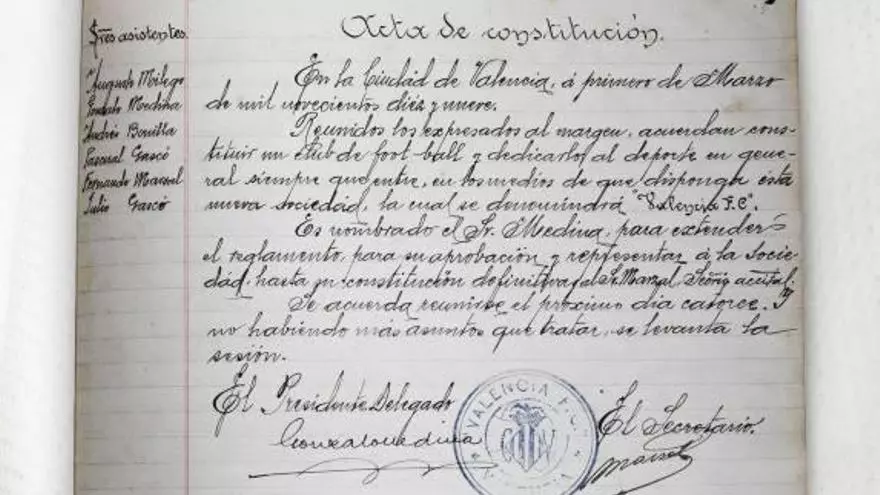 Acta de constitución.
Sres asistentes.
Augusto Milego
Gonzalo Medina
Andrés Bonilla
Pascual Gascó
Fernando Marzal
Julio Gascó
En la Ciudad de Valencia, á primero de Marzo
de mil novecientos diéz y nueve.
Reunidos los expresados al margen, acuerdan cons-
tituir un club de foot-ball y dedicarlo, al deporte en gene-
ral siempre que entre, en los medios de que disponga esta
nueva sociedad, la cual se denominará "Valencia F.C".
Es nombrado el Sr. Medina, para extender
el reglamento, para su aprobación y representar á la Socie-
dad, hasta su constitución definitiva y al Sr. Marzal, actual;
Se acuerda reunirse el próximo dia catorce. Y
no habiendo más asuntos que tratar, se levanta la
sesión.
El Presidente Delegado
El Secretario.
Gonzalo Medina
Marzal
VALENCIA F.C.
VALENCIA